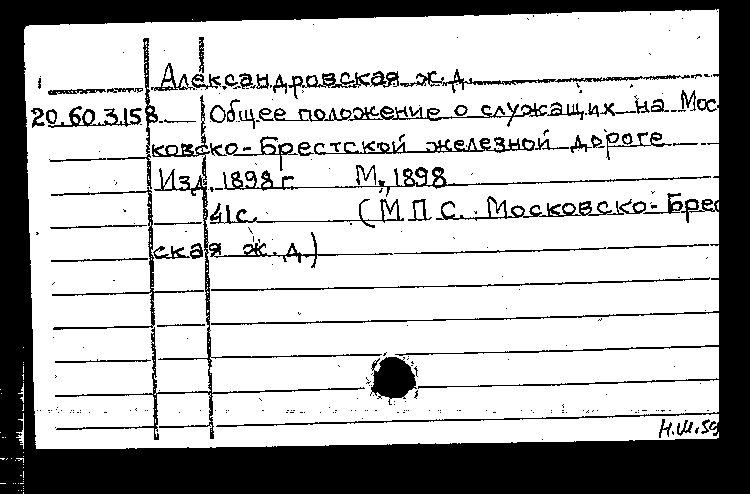 Александровская ж.д.
20.60.3.158 Общее положение о служащих на Мос
ковско-Брестской железной дороге
Изд. 1898 г. М., 1898
41 с. (М.П.С. Московско-Брес
ская ж.д.)